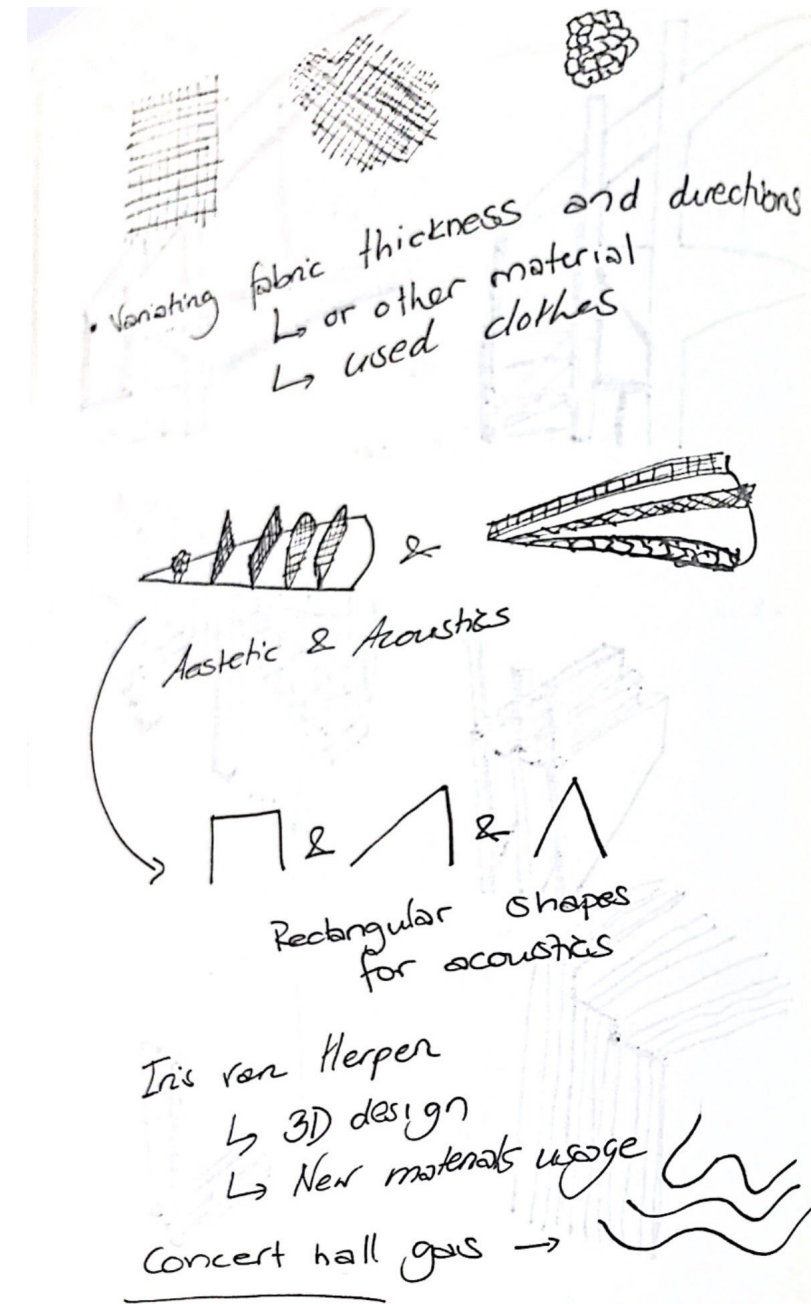 • Variating fabric thickness and directions
↳ or other material
↳ used clothes
&
Aastetic & Acoustics
& &
Rectangular shapes
for acoustics
Iris van Herpen
↳ 3D design
↳ New materials usage
Concert hall →